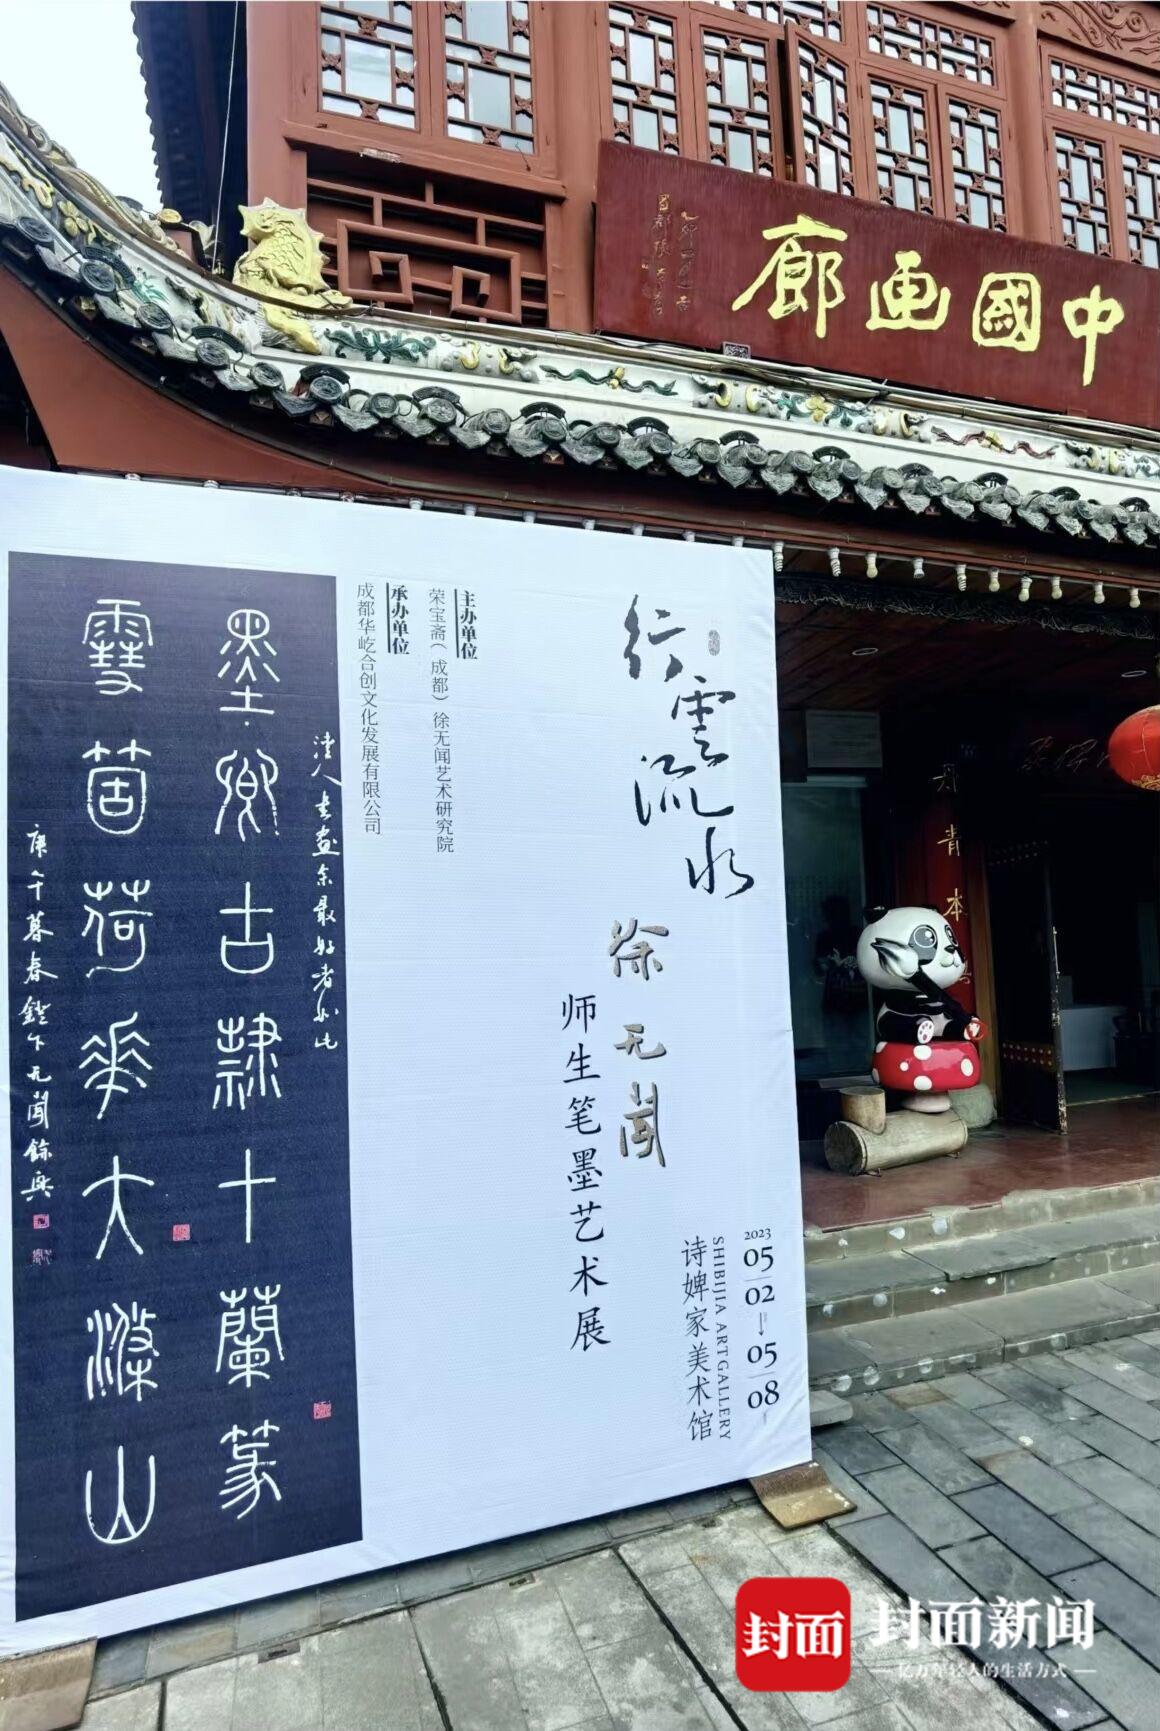 中國画廊
行雲流水
徐无闻
师生笔墨艺术展
主办单位
荣宝斋（成都）徐无闻艺术研究院
承办单位
成都华屹合创文化发展有限公司
2023
05
02
05
08
SHIBIJIA ART GALLERY
诗婢家美术馆
清人書畫余最好者如此
墨卿古隸十蘭篆
雪箇荷華大滌山
庚午暮春鐙下无聞餘興
丹青本
封面
封面新闻
亿万年轻人的生活方式